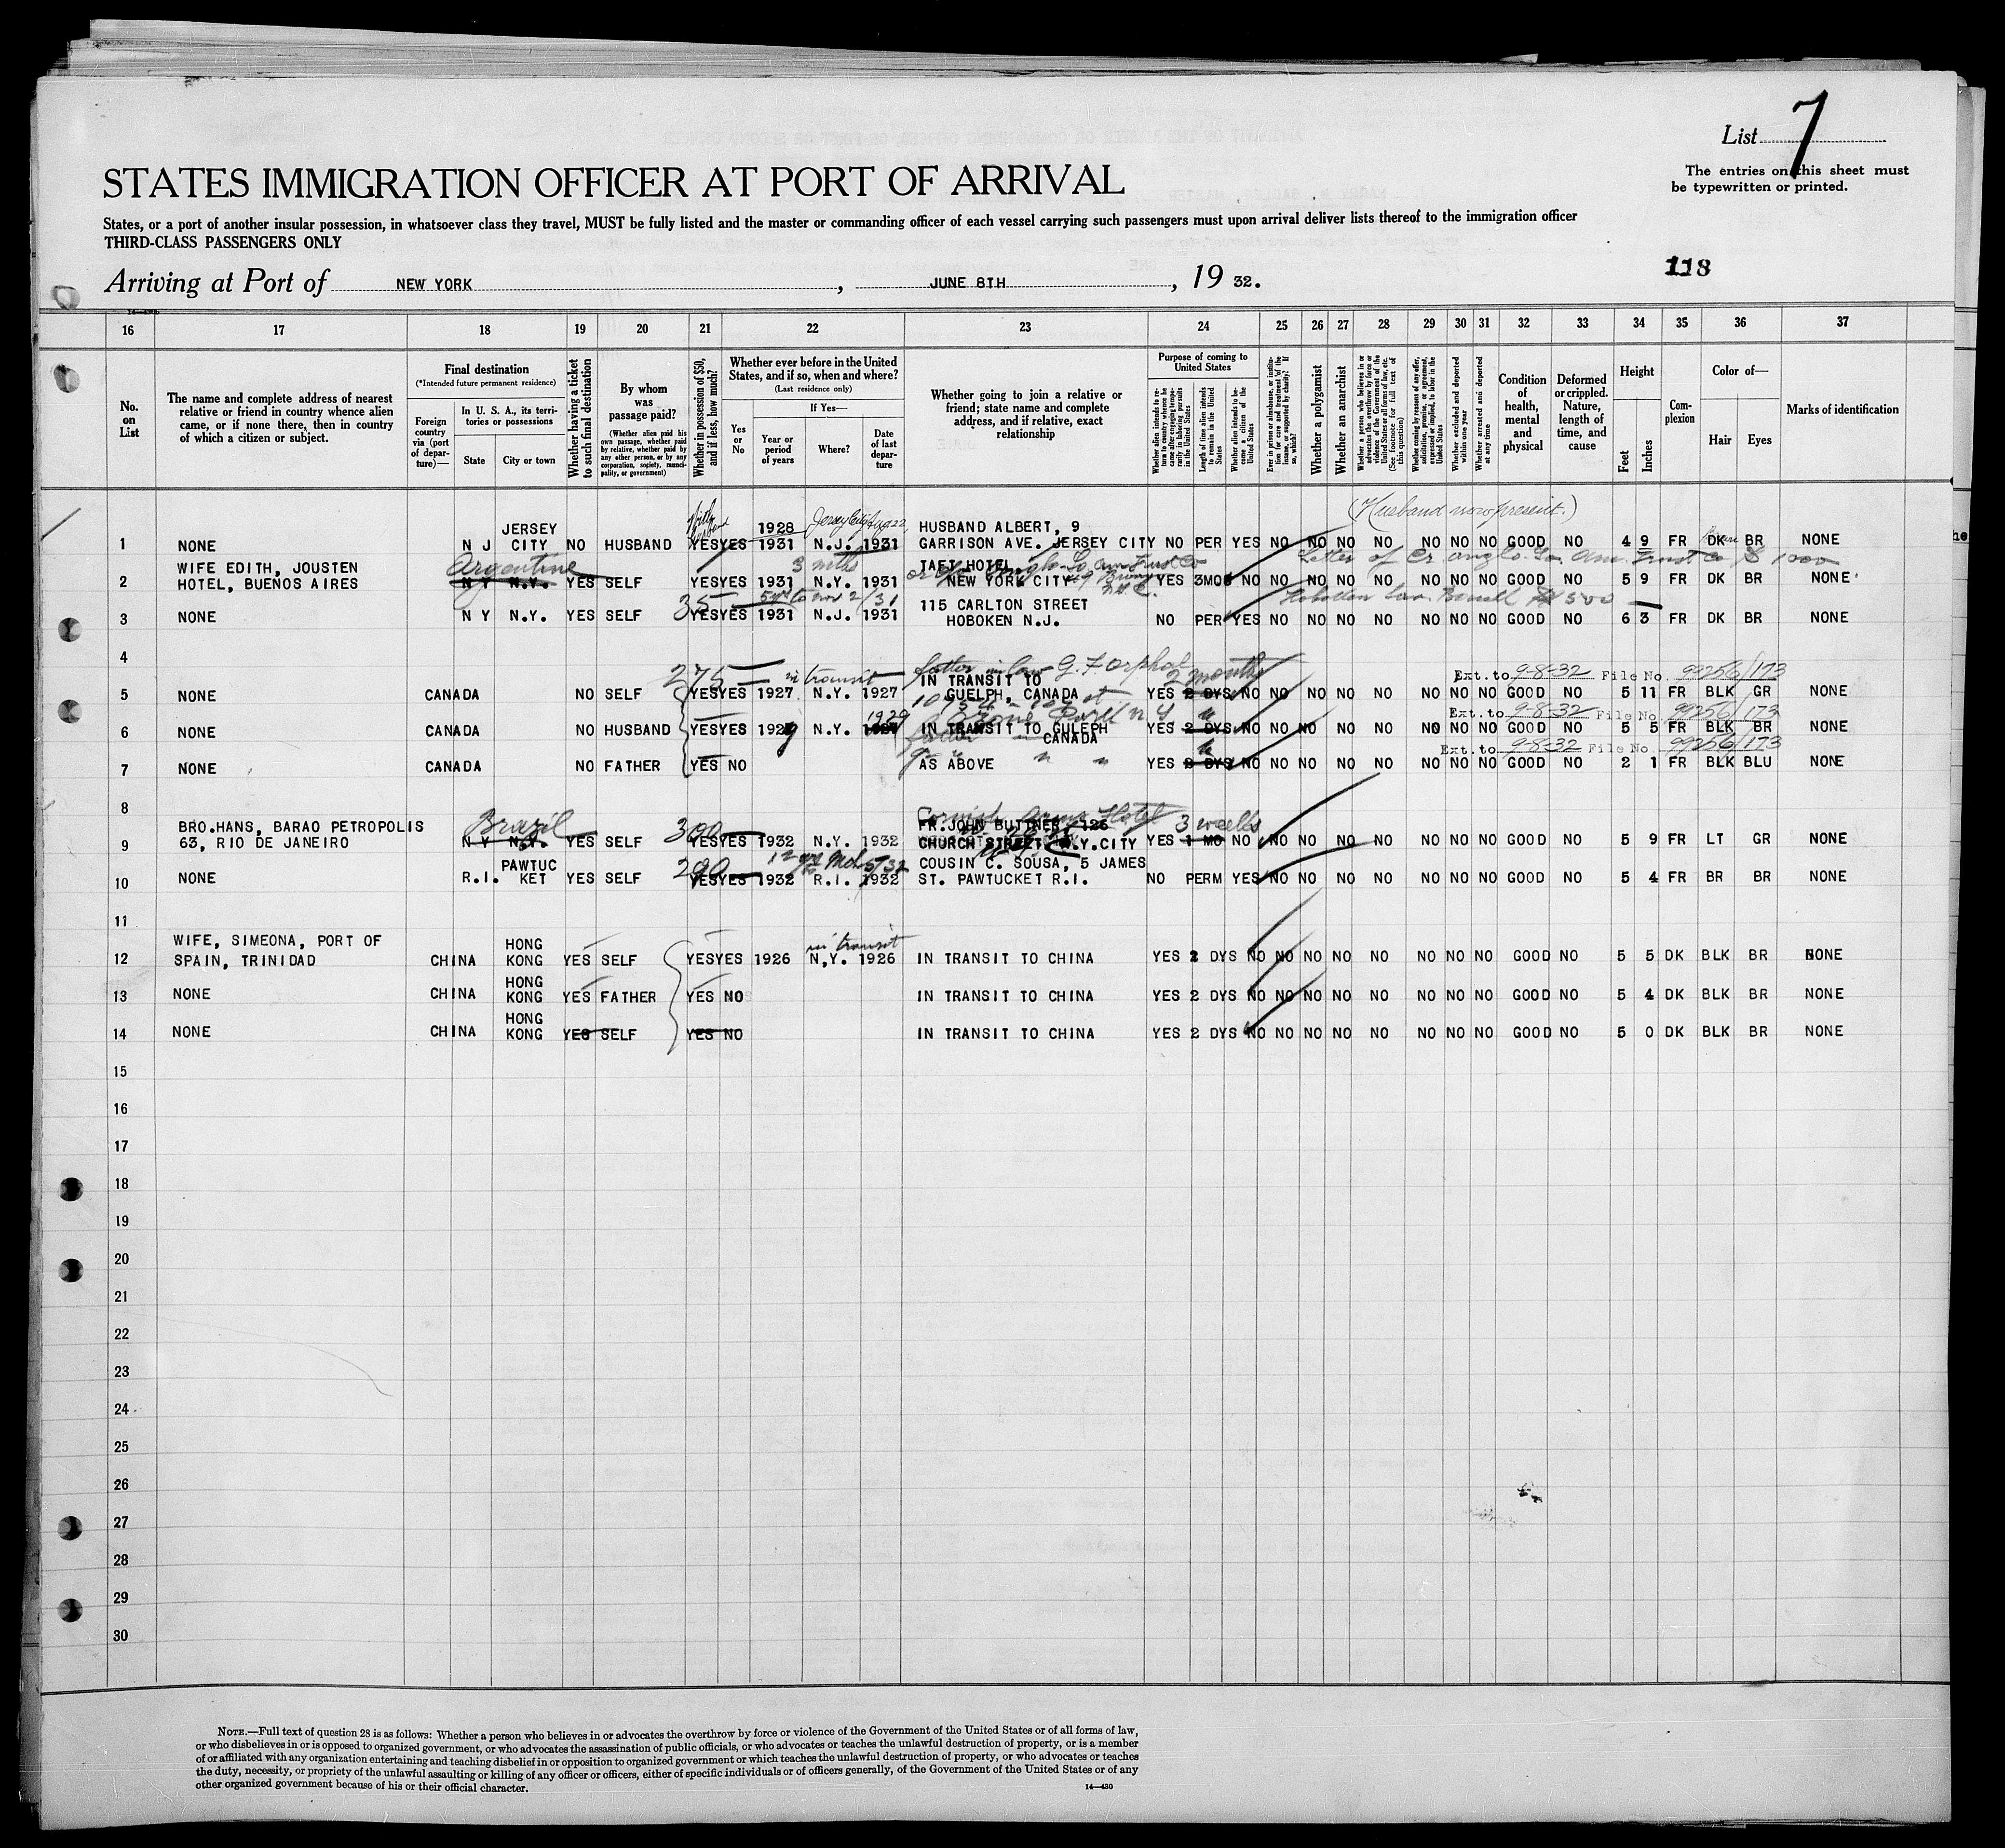 List 7
The entries on this sheet must
be typewritten or printed.
STATES IMMIGRATION OFFICER AT PORT OF ARRIVAL
States, or a port of another insular possession, in whatsoever class they travel, MUST be fully listed and the master or commanding officer of each vessel carrying such passengers must upon arrival deliver lists thereof to the immigration officer
THIRD-CLASS PASSENGERS ONLY
118
Arriving at Port of NEW YORK, JUNE 8TH, 19 32.
16 17 18 19 20 21 22 23 24 25 26 27 28 29 30 31 32 33 34 35 36 37
No. on List
The name and complete address of nearest relative or friend in country whence alien came, or if none there, then in country of which a citizen or subject.
Final destination
(*Intended future permanent residence)
Foreign country via (port of departure)—
In U. S. A., its territories or possessions
State
City or town
Whether having a ticket to such final destination
By whom was passage paid?
(Whether alien paid his own passage, whether paid by relative, whether paid by any other person, or by any corporation, society, municipality, or government)
Whether in possession of $50, and if less, how much?
Whether ever before in the United States, and if so, when and where?
(Last residence only)
Yes or No
If Yes—
Year or period of years
Where?
Date of last departure
Whether going to join a relative or friend; state name and complete address, and if relative, exact relationship
Purpose of coming to United States
Whether alien intends to return to country whence he came after engaging temporarily in laboring pursuits in the United States
Length of time alien intends to remain in the United States
Whether alien intends to become a citizen of the United States
Ever in prison or almshouse, or institution for care and treatment of the insane, or supported by charity? If so, which?
Whether a polygamist
Whether an anarchist
Whether a person who believes in or advocates the overthrow by force or violence of the Government of the United States or of all forms of law, etc. (See footnote for full text of this question)
Whether coming by reasons of any offer, solicitation, promise, or agreement, expressed or implied, to labor in the United States
Whether excluded and deported within one year
Whether arrested and deported at any time
Condition of health, mental and physical
Deformed or crippled. Nature, length of time, and cause
Height
Feet
Inches
Complexion
Color of—
Hair
Eyes
Marks of identification
(Husband now present.)
JERSEY 1928 Jersey City HUSBAND ALBERT, 9
1 NONE N J CITY NO HUSBAND YES YES 1931 N.J. 1931 GARRISON AVE. JERSEY CITY NO PER YES NO NO NO NO NO NO NO GOOD NO 4 9 FR DK BR NONE
WIFE EDITH, JOUSTEN Argentine 3 mths TAFT HOTEL Letter of Cr. Anglo. So. Am. Trust Co $ 1000
2 HOTEL, BUENOS AIRES N Y N.Y. YES SELF YES YES 1931 N.Y. 1931 NEW YORK CITY YES 3MOS NO NO NO NO NO NO NO NO GOOD NO 5 9 FR DK BR NONE
35 5 yrs to Nov 2/31 115 CARLTON STREET
3 NONE N Y N.Y. YES SELF YES YES 1931 N.J. 1931 HOBOKEN N.J. NO PER YES NO NO NO NO NO NO NO GOOD NO 6 3 FR DK BR NONE
4
275 in transit father in law G. F. Orphal 2 months
IN TRANSIT TO Ext. to 9-8-32 File No. 99256/173
5 NONE CANADA NO SELF YES YES 1927 N.Y. 1927 GUELPH, CANADA YES 2 DYS NO NO NO NO NO NO NO NO GOOD NO 5 11 FR BLK GR NONE
1929 Ozone Park N.Y. " Ext. to 9-8-32 File No. 99256/173
6 NONE CANADA NO HUSBAND YES YES 1927 N.Y. 1927 IN TRANSIT TO GULEPH CANADA YES 2 DYS NO NO NO NO NO NO NO NO GOOD NO 5 5 FR BLK BR NONE
" Ext. to 9-8-32 File No. 99256/173
7 NONE CANADA NO FATHER YES NO AS ABOVE " " YES 2 DYS NO NO NO NO NO NO NO NO GOOD NO 2 1 FR BLK BLU NONE
8
Cornish Arms Hotel
BRO.HANS, BARAO PETROPOLIS Brazil 300 FR.JOHN BUTTNER, 126 3 weeks
9 63, RIO DE JANEIRO N Y N.Y. YES SELF YES YES 1932 N.Y. 1932 CHURCH STREET, N.Y.CITY YES 1 MO NO NO NO NO NO NO NO NO GOOD NO 5 9 FR LT GR NONE
PAWTUC COUSIN C. SOUSA, 5 JAMES
10 NONE R.I. KET YES SELF YES YES 1932 R.I. 1932 ST. PAWTUCKET R.I. NO PERM YES NO NO NO NO NO NO NO GOOD NO 5 4 FR BR BR NONE
11
WIFE, SIMEONA, PORT OF HONG in transit
12 SPAIN, TRINIDAD CHINA KONG YES SELF YES YES 1926 N.Y. 1926 IN TRANSIT TO CHINA YES 2 DYS NO NO NO NO NO NO NO NO GOOD NO 5 5 DK BLK BR NONE
HONG
13 NONE CHINA KONG YES FATHER YES NO IN TRANSIT TO CHINA YES 2 DYS NO NO NO NO NO NO NO NO GOOD NO 5 4 DK BLK BR NONE
HONG
14 NONE CHINA KONG YES SELF YES NO IN TRANSIT TO CHINA YES 2 DYS NO NO NO NO NO NO NO NO GOOD NO 5 0 DK BLK BR NONE
15
16
17
18
19
20
21
22
23
24
25
26
27
28
29
30
NOTE.—Full text of question 28 is as follows: Whether a person who believes in or advocates the overthrow by force or violence of the Government of the United States or of all forms of law,
or who disbelieves in or is opposed to organized government, or who advocates the assassination of public officials, or who advocates or teaches the unlawful destruction of property, or is a member
of or affiliated with any organization entertaining and teaching disbelief in or opposition to organized government or which teaches the unlawful destruction of property, or who advocates or teaches
the duty, necessity, or propriety of the unlawful assaulting or killing of any officer or officers, either of specific individuals or of officers generally, of the Government of the United States or of any
other organized government because of his or their official character.
14—430